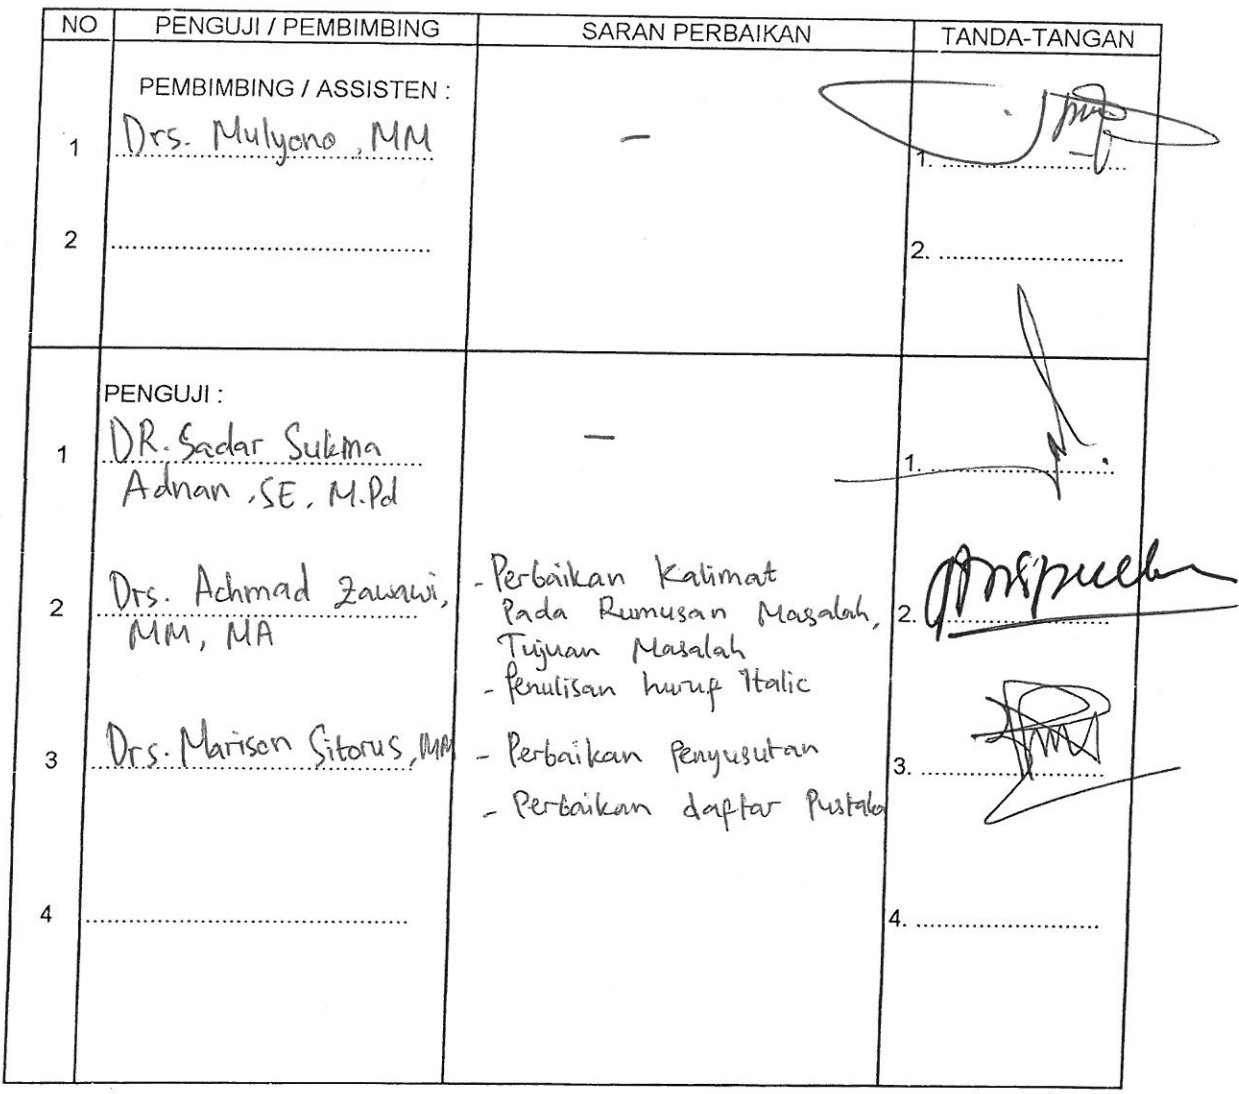 NO PENGUJI / PEMBIMBING SARAN PERBAIKAN TANDA-TANGAN
PEMBIMBING / ASSISTEN :
1 Drs. Mulyono, MM - 1. ........................
2 ........................ 2. ........................
PENGUJI :
1 DR. Sadar Sukma - 1. ........................
Adnan, SE, M.Pd
2 Drs. Achmad Zawawi, - Perbaikan Kalimat 2. ........................
MM, MA Pada Rumusan Masalah,
Tujuan Masalah
- Penulisan huruf Italic
3 Drs. Marison Sitorus, MM - Perbaikan Penyusutan 3. ........................
- Perbaikan daftar Pustaka
4 ........................ 4. ........................